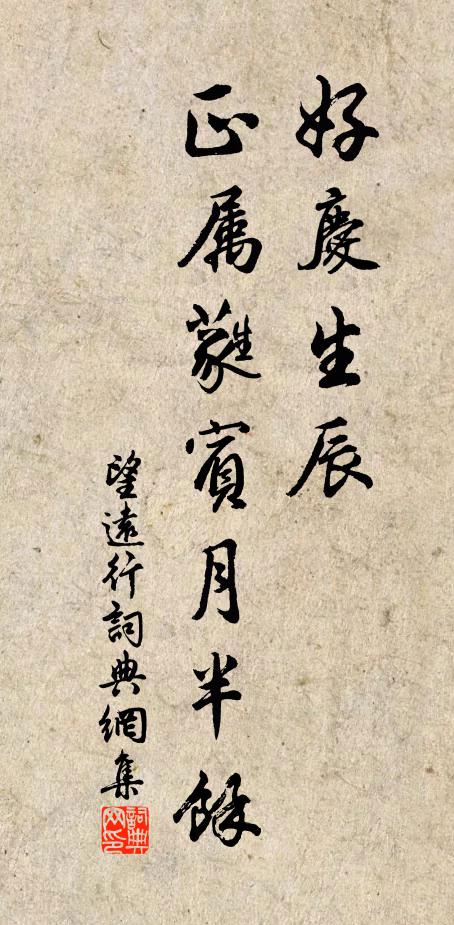 好慶生辰
正属蕤賓月半餘
望遠行詞典網集
詞典網印